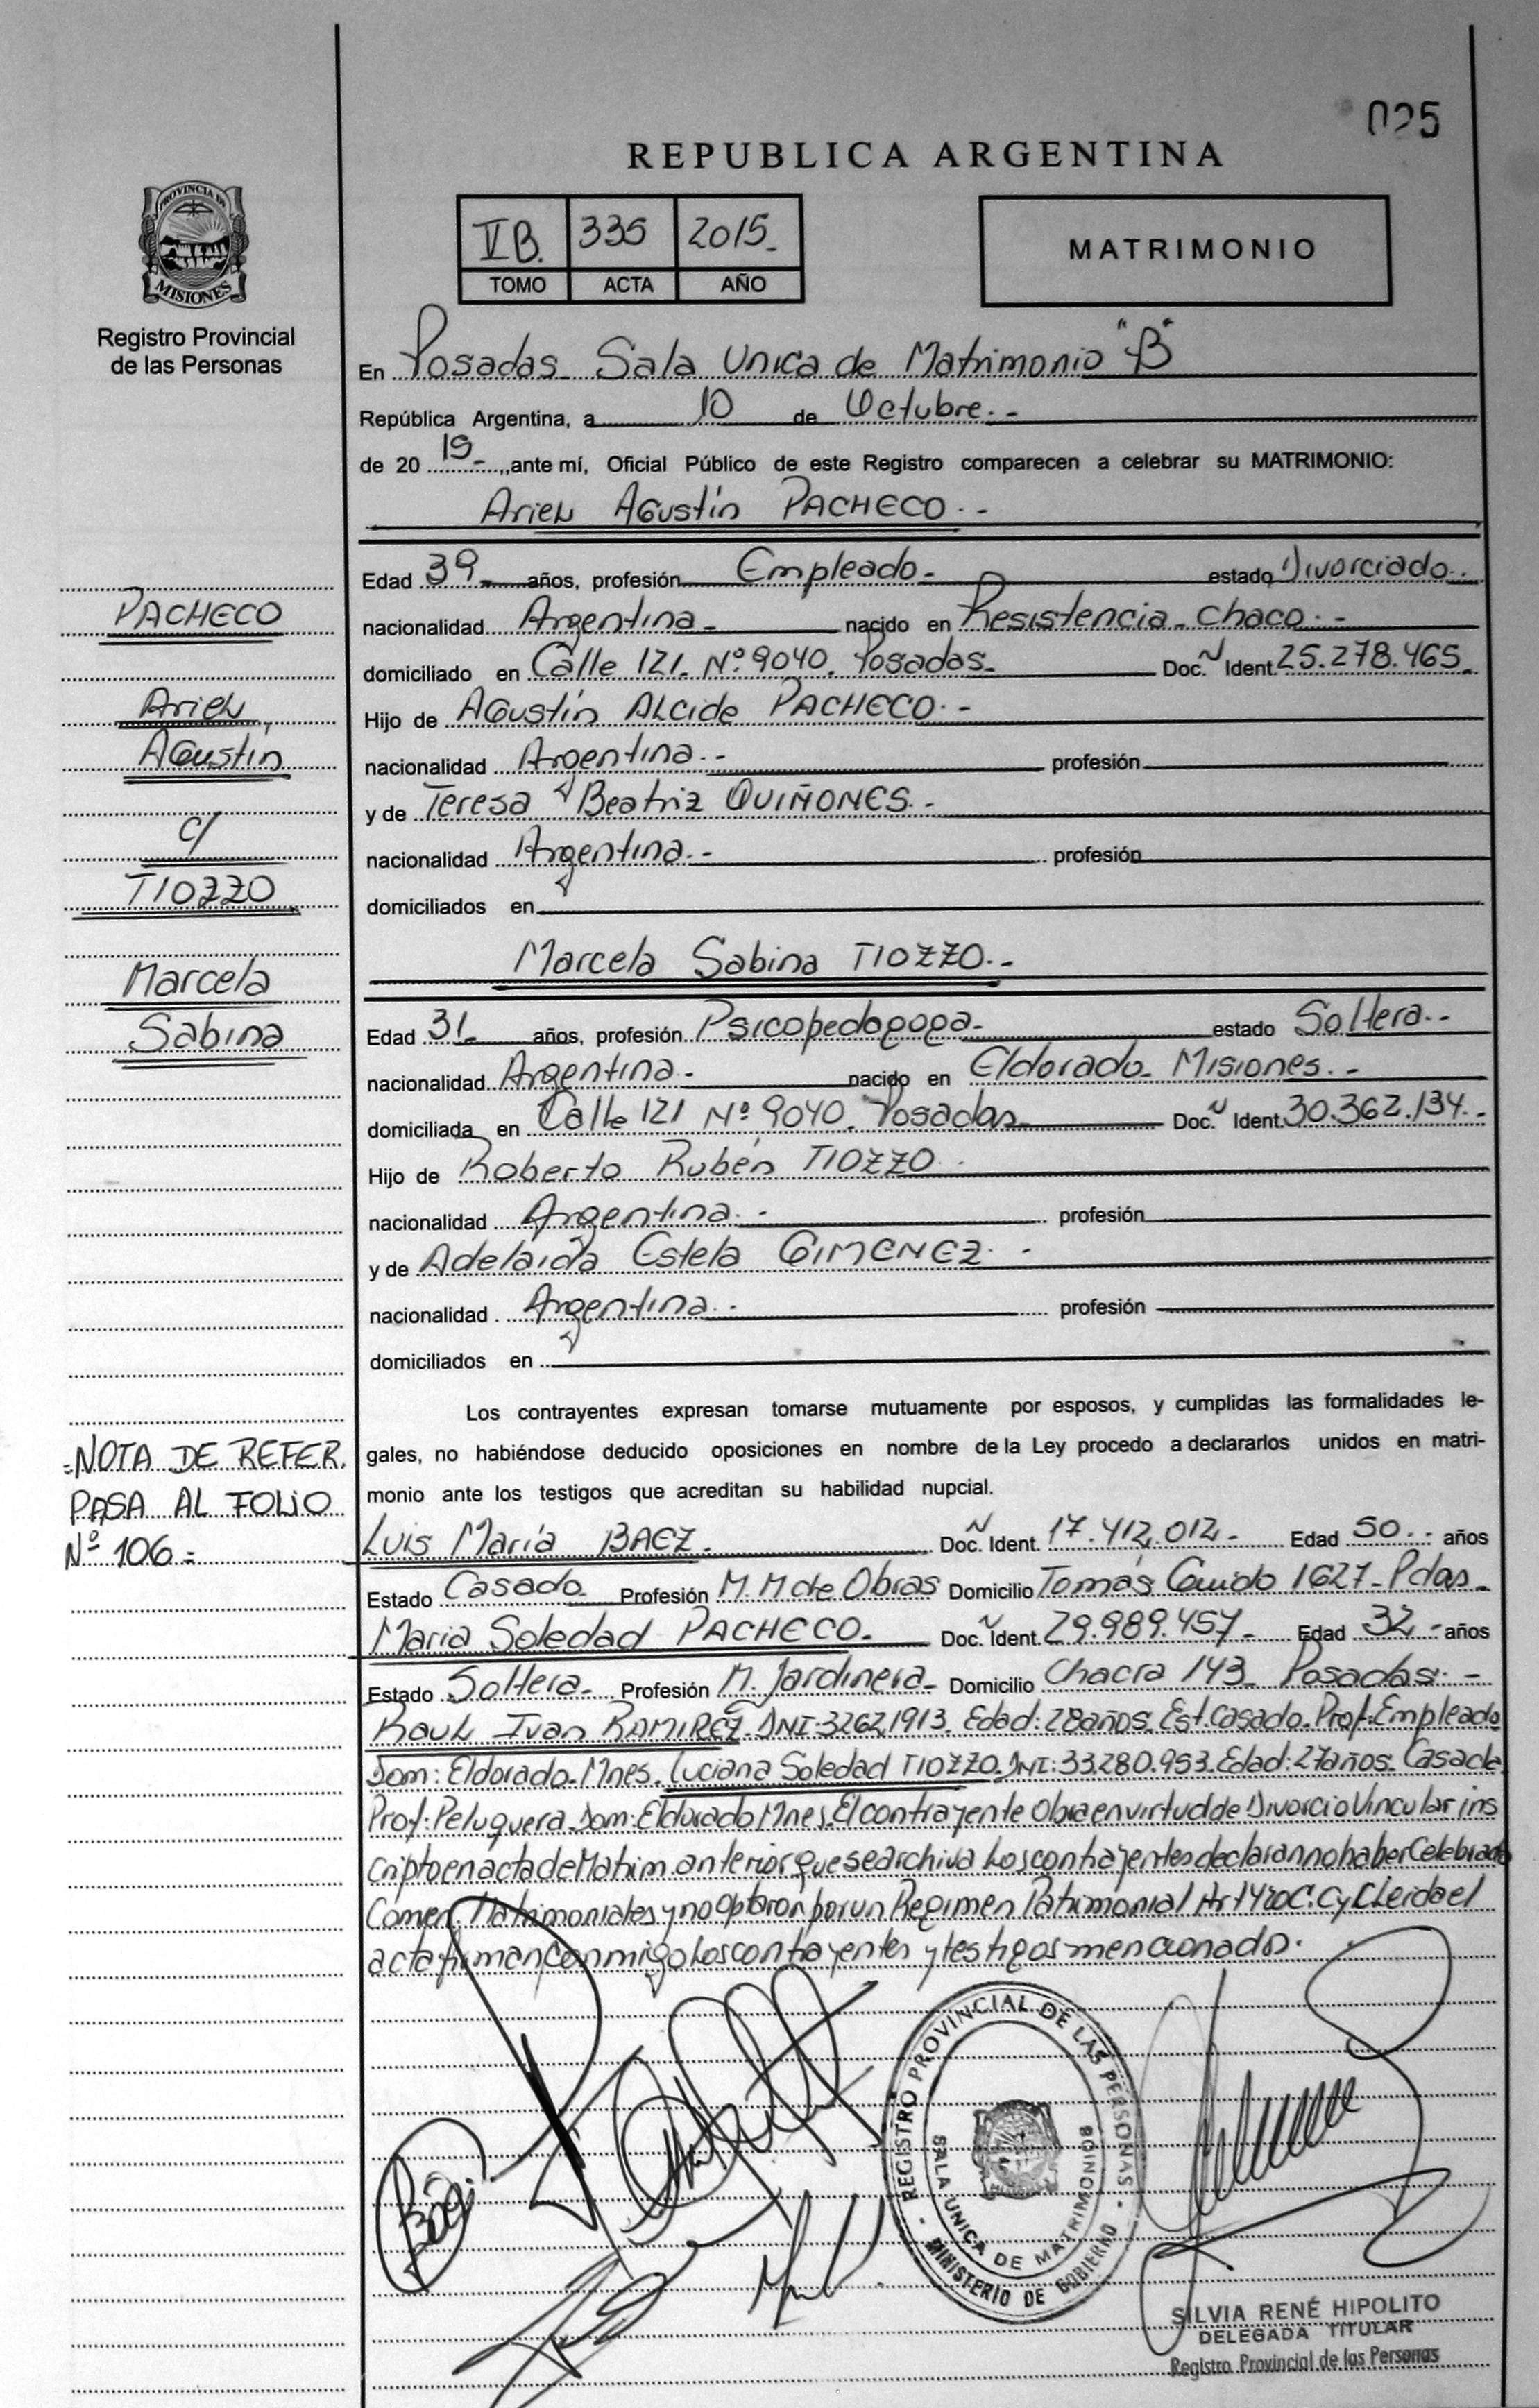 025
REPUBLICA ARGENTINA
PROVINCIA DE
MISIONES
Registro Provincial
de las Personas
VB. 335 2015.
TOMO ACTA AÑO
MATRIMONIO
En Posadas Sala Unica de Matrimonio "B"
República Argentina, a 10 de Octubre.-
de 20 15.,,ante mí, Oficial Público de este Registro comparecen a celebrar su MATRIMONIO:
Ariel Agustín PACHECO.-
Edad 39 años, profesión Empleado.- estado Divorciado.
nacionalidad Argentina.- nacido en Resistencia- Chaco.-
domiciliado en Calle 121. Nº 9040. Posadas- Doc. Ident. 25.278.465.
Hijo de Agustín Alcide PACHECO.-
nacionalidad Argentina.- profesión
y de Teresa Beatriz QUIÑONES.-
nacionalidad Argentina.- profesión
domiciliados en
Marcela Sabina TIOZZO.-
Edad 31 años, profesión Psicopedagoga.- estado Soltera.-
nacionalidad Argentina.- nacido en Eldorado- Misiones.-
domiciliada en Calle 121 Nº 9040. Posadas Doc. Ident. 30.362.134.-
Hijo de Roberto Rubén TIOZZO.
nacionalidad Argentina.- profesión
y de Adelaida Estela GIMENEZ.-
nacionalidad . Argentina.- profesión
domiciliados en
PACHECO
Ariel
Agustín
c/
TIOZZO
Marcela
Sabina
Los contrayentes expresan tomarse mutuamente por esposos, y cumplidas las formalidades le-
gales, no habiéndose deducido oposiciones en nombre de la Ley procedo a declararlos unidos en matri-
monio ante los testigos que acreditan su habilidad nupcial.
=NOTA DE REFER.
PASA AL FOLIO
Nº 106=
Luis María BAEZ. Doc. Ident. 17.412.012.- Edad 50.- años
Estado Casado. Profesión M.M de Obras Domicilio Tomás Guido 1627- Pdas.
Maria Soledad PACHECO. Doc. Ident. 29.989.457- Edad 32.- años
Estado Soltera- Profesión M. Jardinera- Domicilio Chacra 143- Posadas.-
Raul Ivan RAMIREZ. DNI: 32621913. Edad: 28 años. Est. Casado. Prof: Empleado
Dom: Eldorado- Mnes. Luciana Soledad TIOZZO. DNI: 33.280.953. Edad: 27 años. Casada
Prof: Peluquera. Dom: Eldorado Mnes. El contrayente Obra en virtud de Divorcio Vincular ins
cripto en acta de Matrim. anterior que se archiva Los contrayentes declaran no haber Celebrado
Conven. Matrimoniales y no optaron por un Regimen Patrimonial Art 420 C.C y C Leida el
acta firman Conmigo Los contrayentes y testigos mencionado.
REGISTRO PROVINCIAL DE LAS PERSONAS
MINISTERIO DE GOBIERNO
SALA UNICA DE MATRIMONIO
SILVIA RENÉ HIPOLITO
DELEGADA TITULAR
Registro Provincial de las Personas